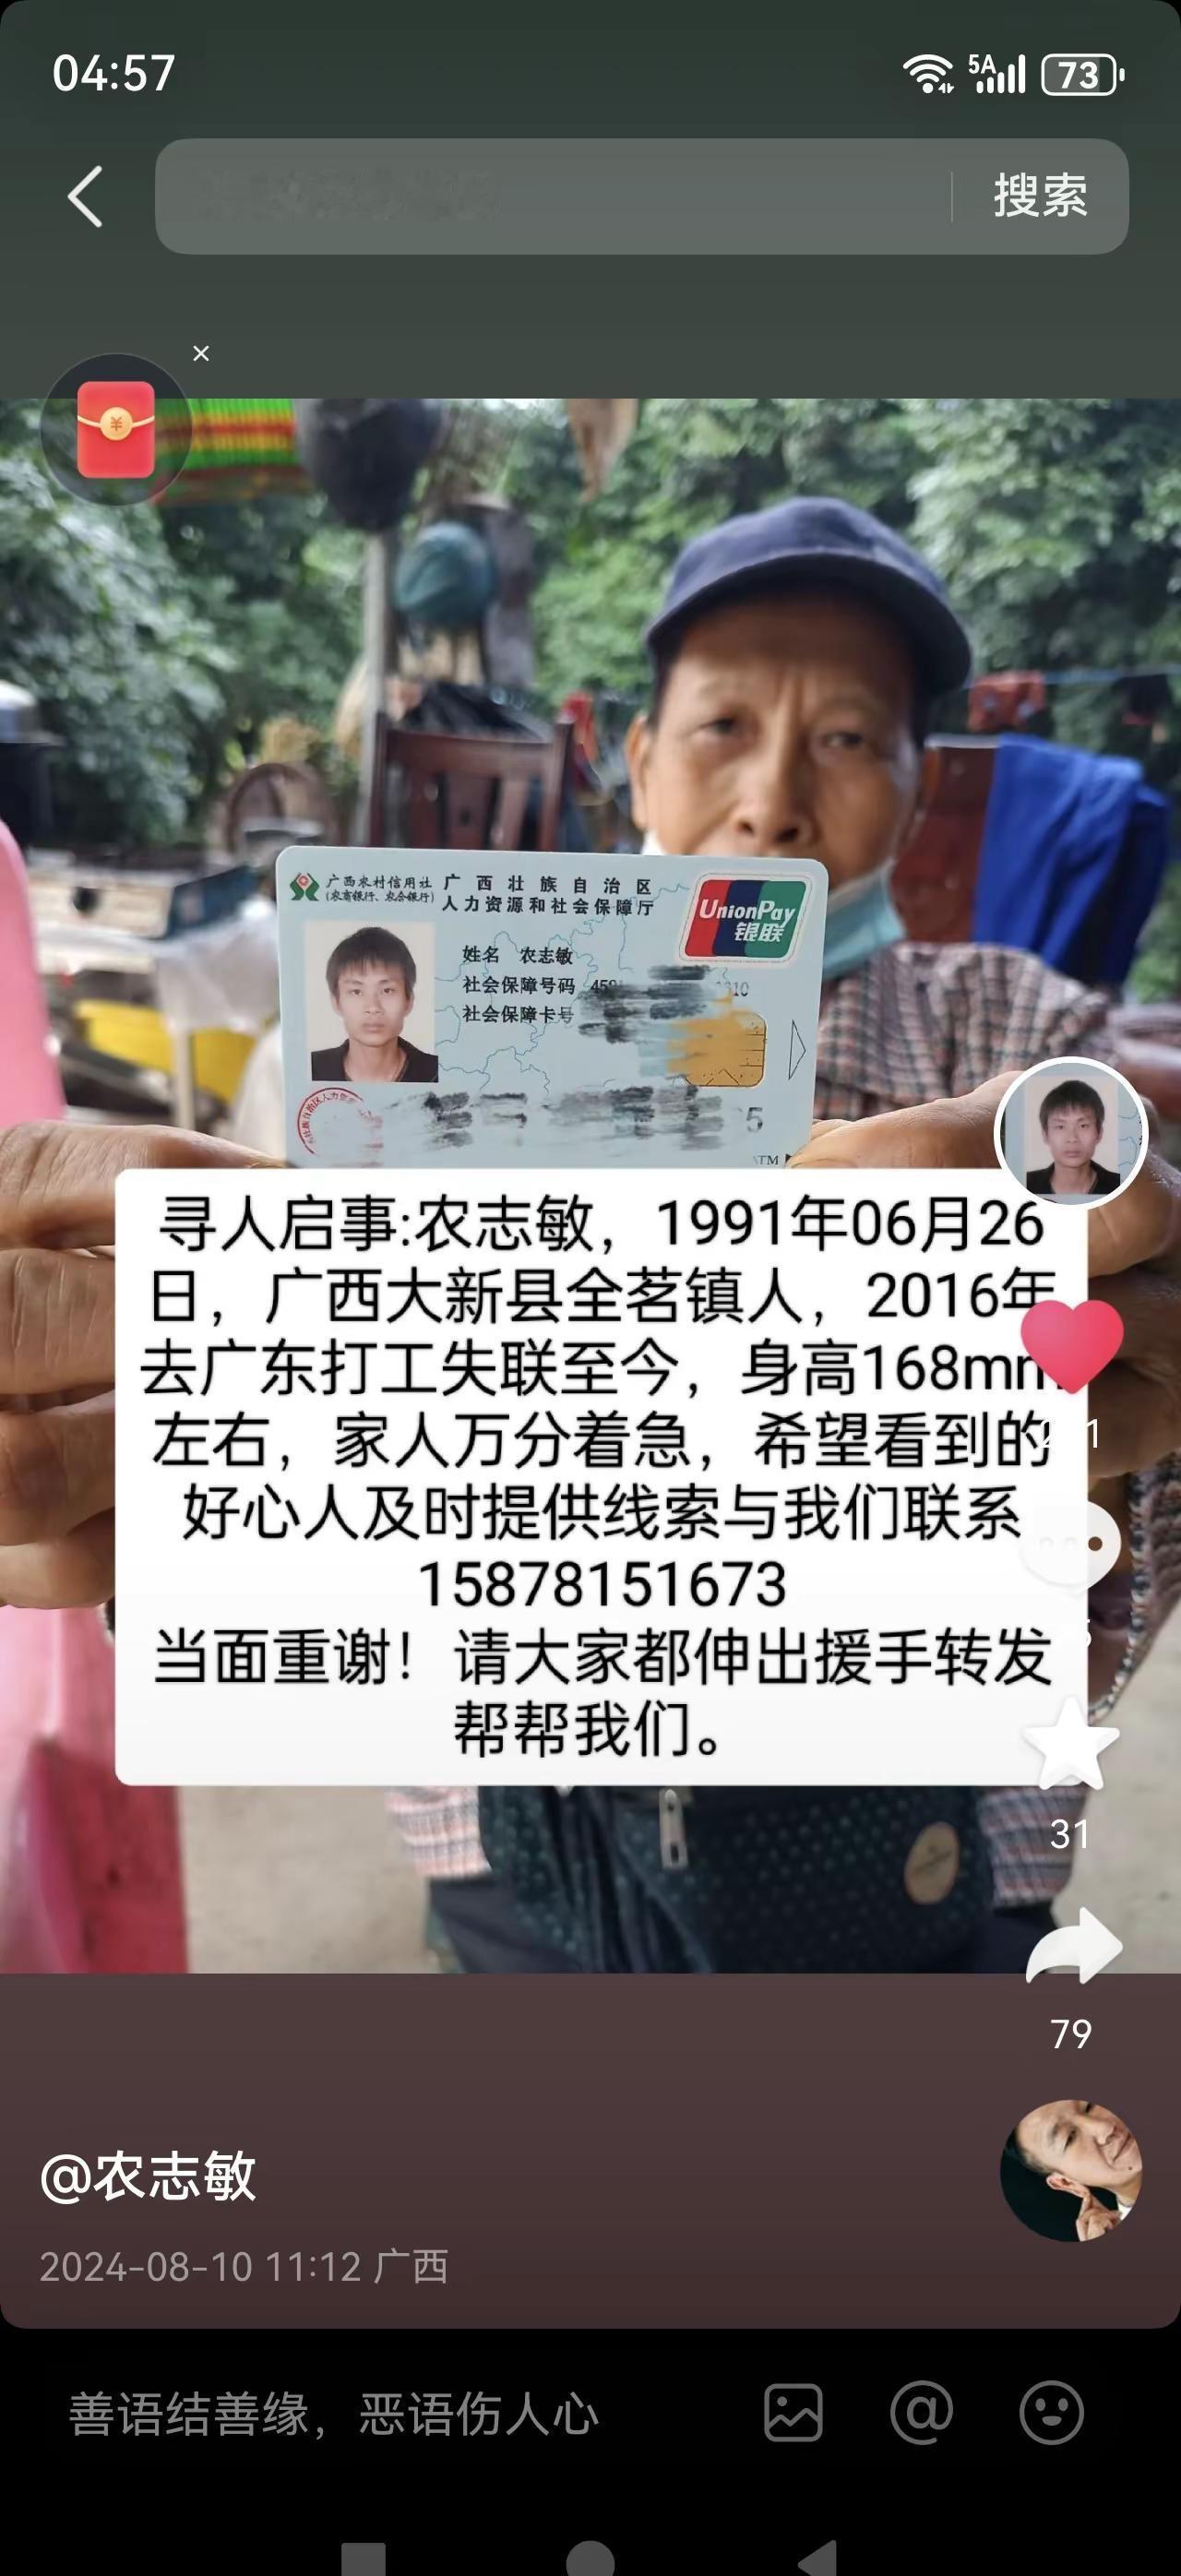 04:57
5A
73
搜索
广西农村信用社
(农商银行、农合银行)
广西壮族自治区
人力资源和社会保障厅
UnionPay
银联
姓名 农志敏
社会保障号码
社会保障卡号
寻人启事:农志敏，1991年06月26
日，广西大新县全茗镇人，2016年
去广东打工失联至今，身高168mm
左右，家人万分着急，希望看到的
好心人及时提供线索与我们联系
15878151673
当面重谢！请大家都伸出援手转发
帮帮我们。
31
79
@农志敏
2024-08-10 11:12 广西
善语结善缘，恶语伤人心